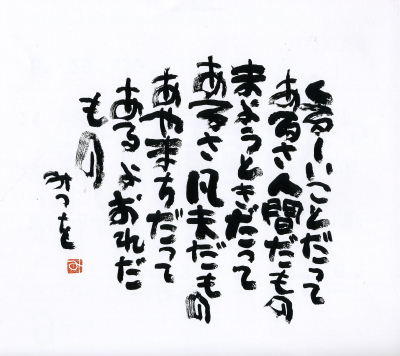 くるしいことだって
あるさ人間だもの
まようときだって
あるさ凡夫だもの
あやまちだって
あるよおれだ
もの
みつを